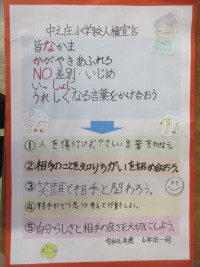 中之庄小学校人権宣言
皆なかま
かがやきあふれる
NO差別・いじめ
いっしょに
うれしくなる言葉をかけ合おう
①人を傷付けずやさしい言葉を使おう。
②相手のことを知りちがいを認め合おう。
③笑顔で相手と関わろう。
④相手がどう思うか考えて行動しよう。
⑤自分らしさと相手の良さを大切にしよう。
令和6年度 6年生一同